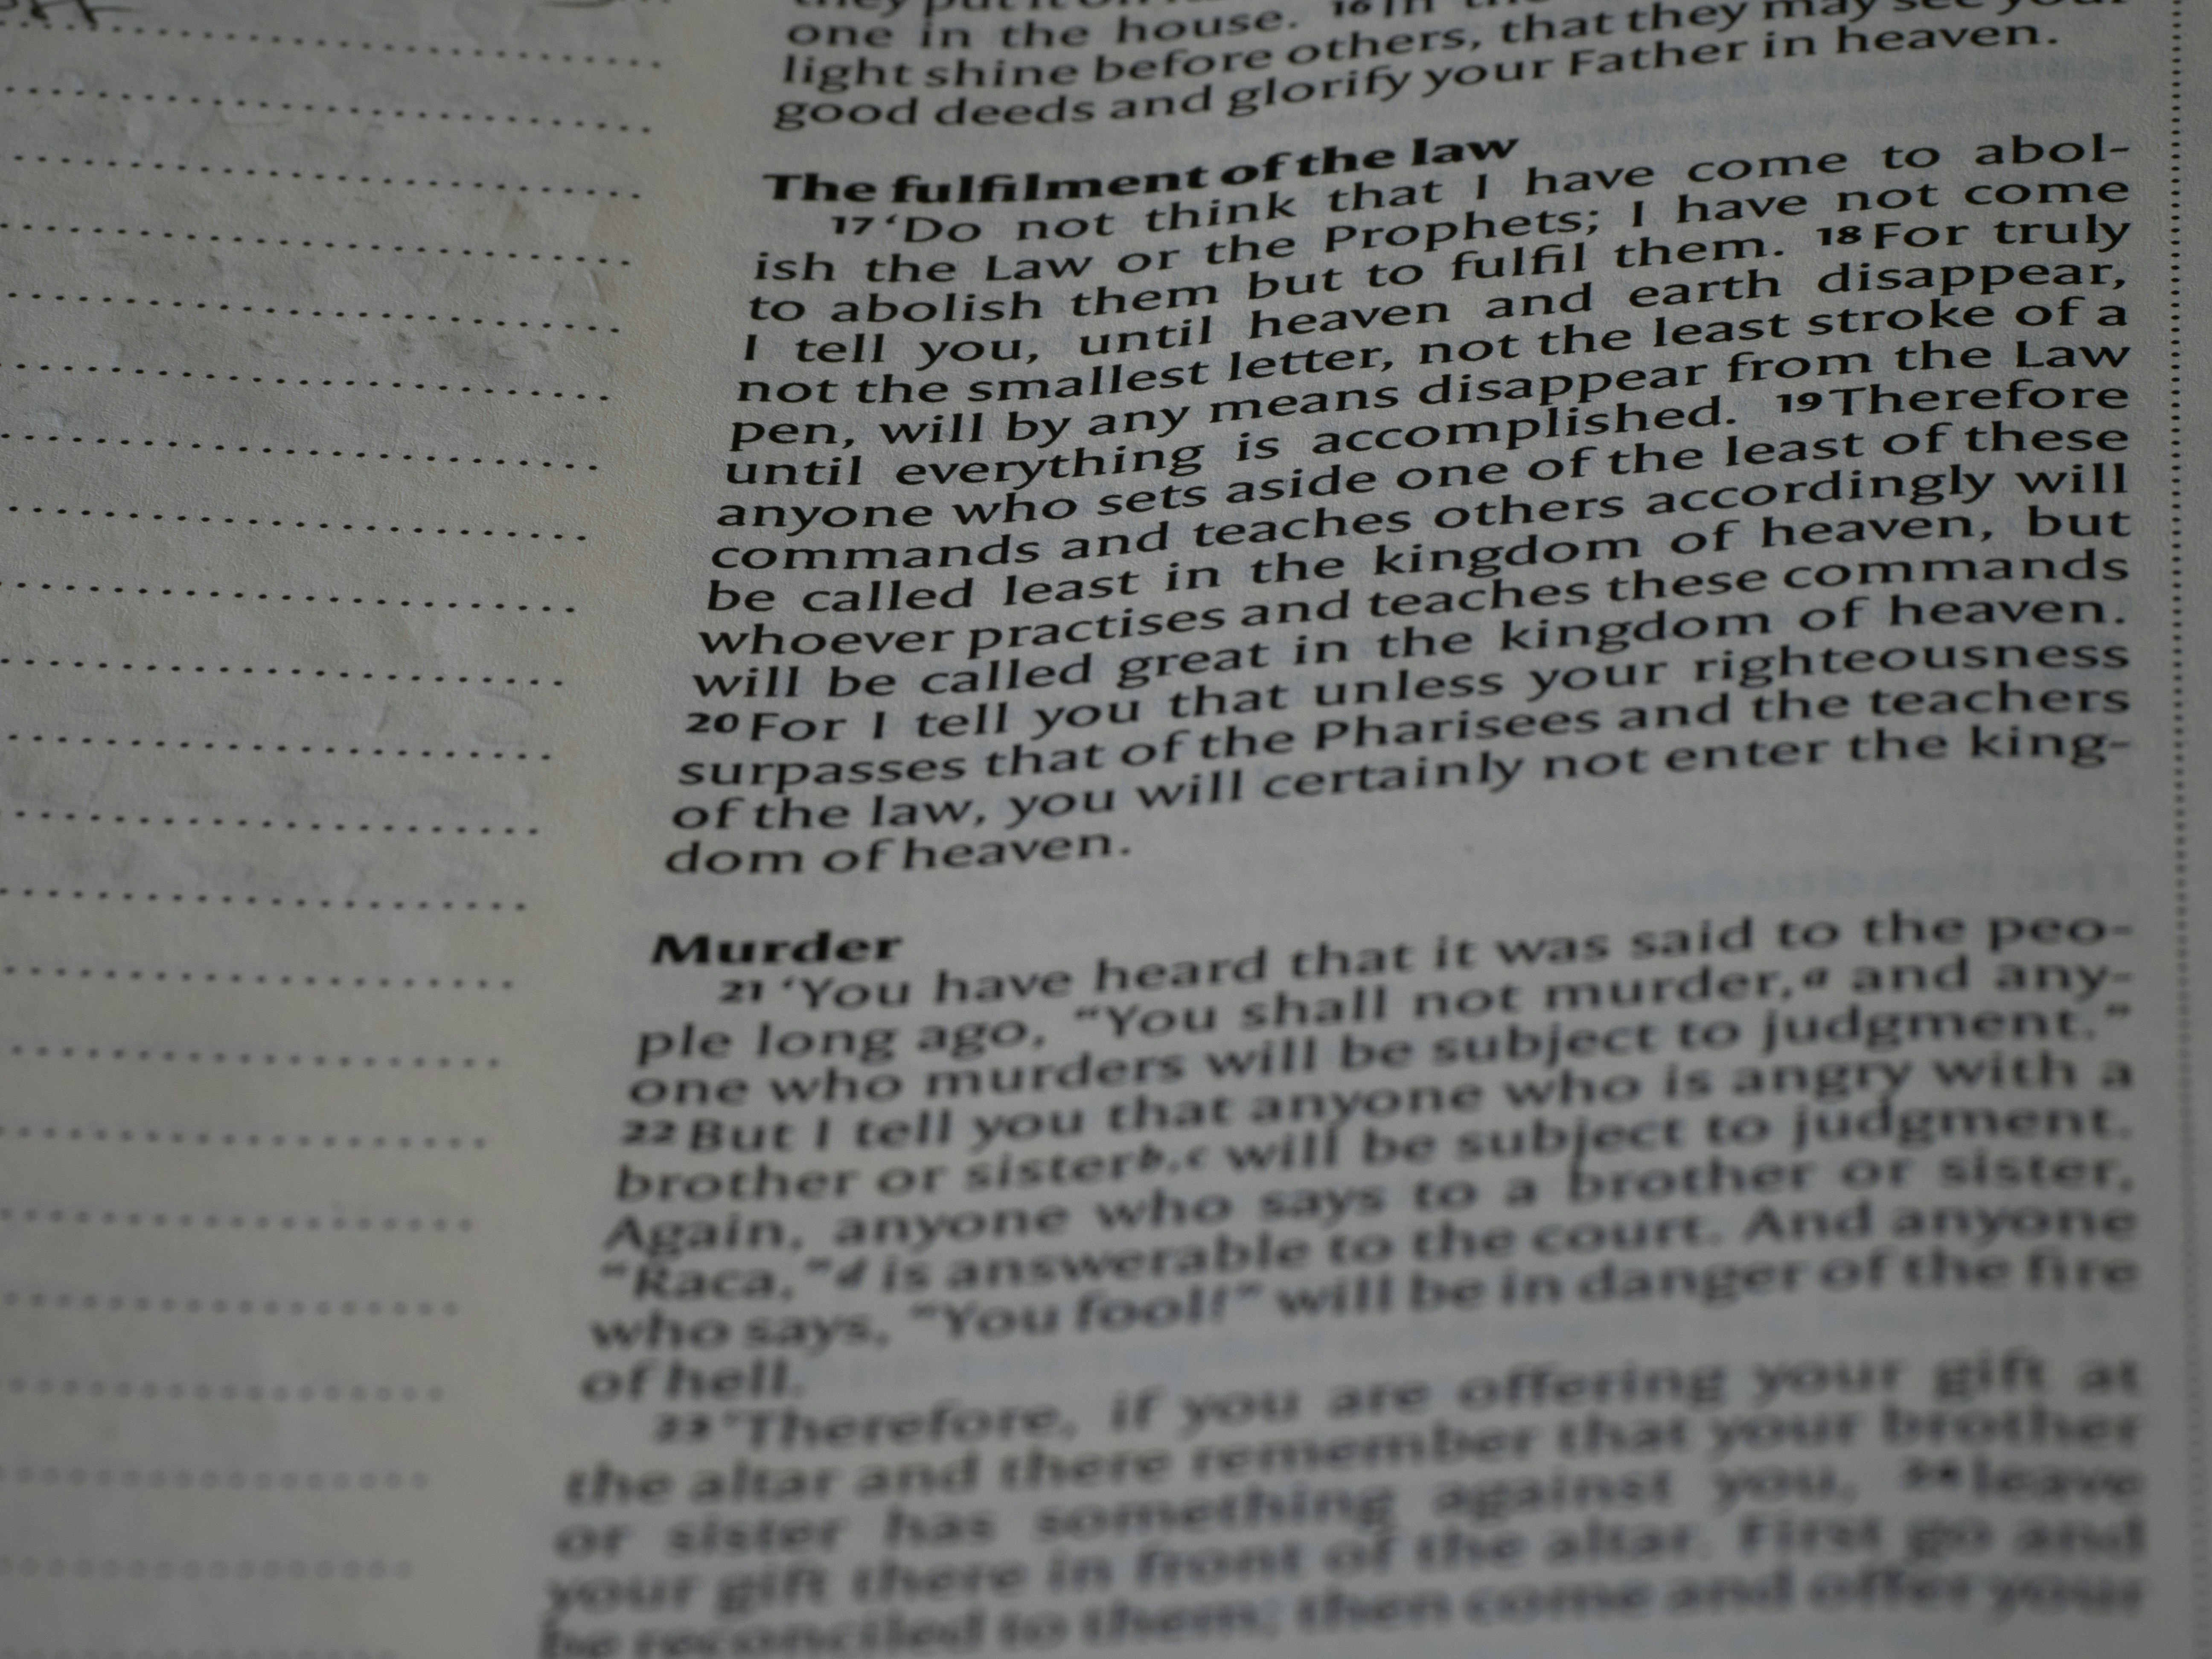 one in the house. 16 In the
light shine before others, that they may see your
good deeds and glorify your Father in heaven.
The fulfilment of the law
17 ‘Do not think that I have come to abol-
ish the Law or the Prophets; I have not come
to abolish them but to fulfil them. 18 For truly
I tell you, until heaven and earth disappear,
not the smallest letter, not the least stroke of a
pen, will by any means disappear from the Law
until everything is accomplished. 19 Therefore
anyone who sets aside one of the least of these
commands and teaches others accordingly will
be called least in the kingdom of heaven, but
whoever practises and teaches these commands
will be called great in the kingdom of heaven.
20 For I tell you that unless your righteousness
surpasses that of the Pharisees and the teachers
of the law, you will certainly not enter the king-
dom of heaven.
Murder
21 ‘You have heard that it was said to the peo-
ple long ago, “You shall not murder,a and any-
one who murders will be subject to judgment.”
22 But I tell you that anyone who is angry with a
brother or sisterb,c will be subject to judgment.
Again, anyone who says to a brother or sister,
“Raca,”d is answerable to the court. And anyone
who says, “You fool!” will be in danger of the fire
of hell.
23 ‘Therefore, if you are offering your gift at
the altar and there remember that your brother
or sister has something against you, 24 leave
your gift there in front of the altar. First go and
be reconciled to them; then come and offer your